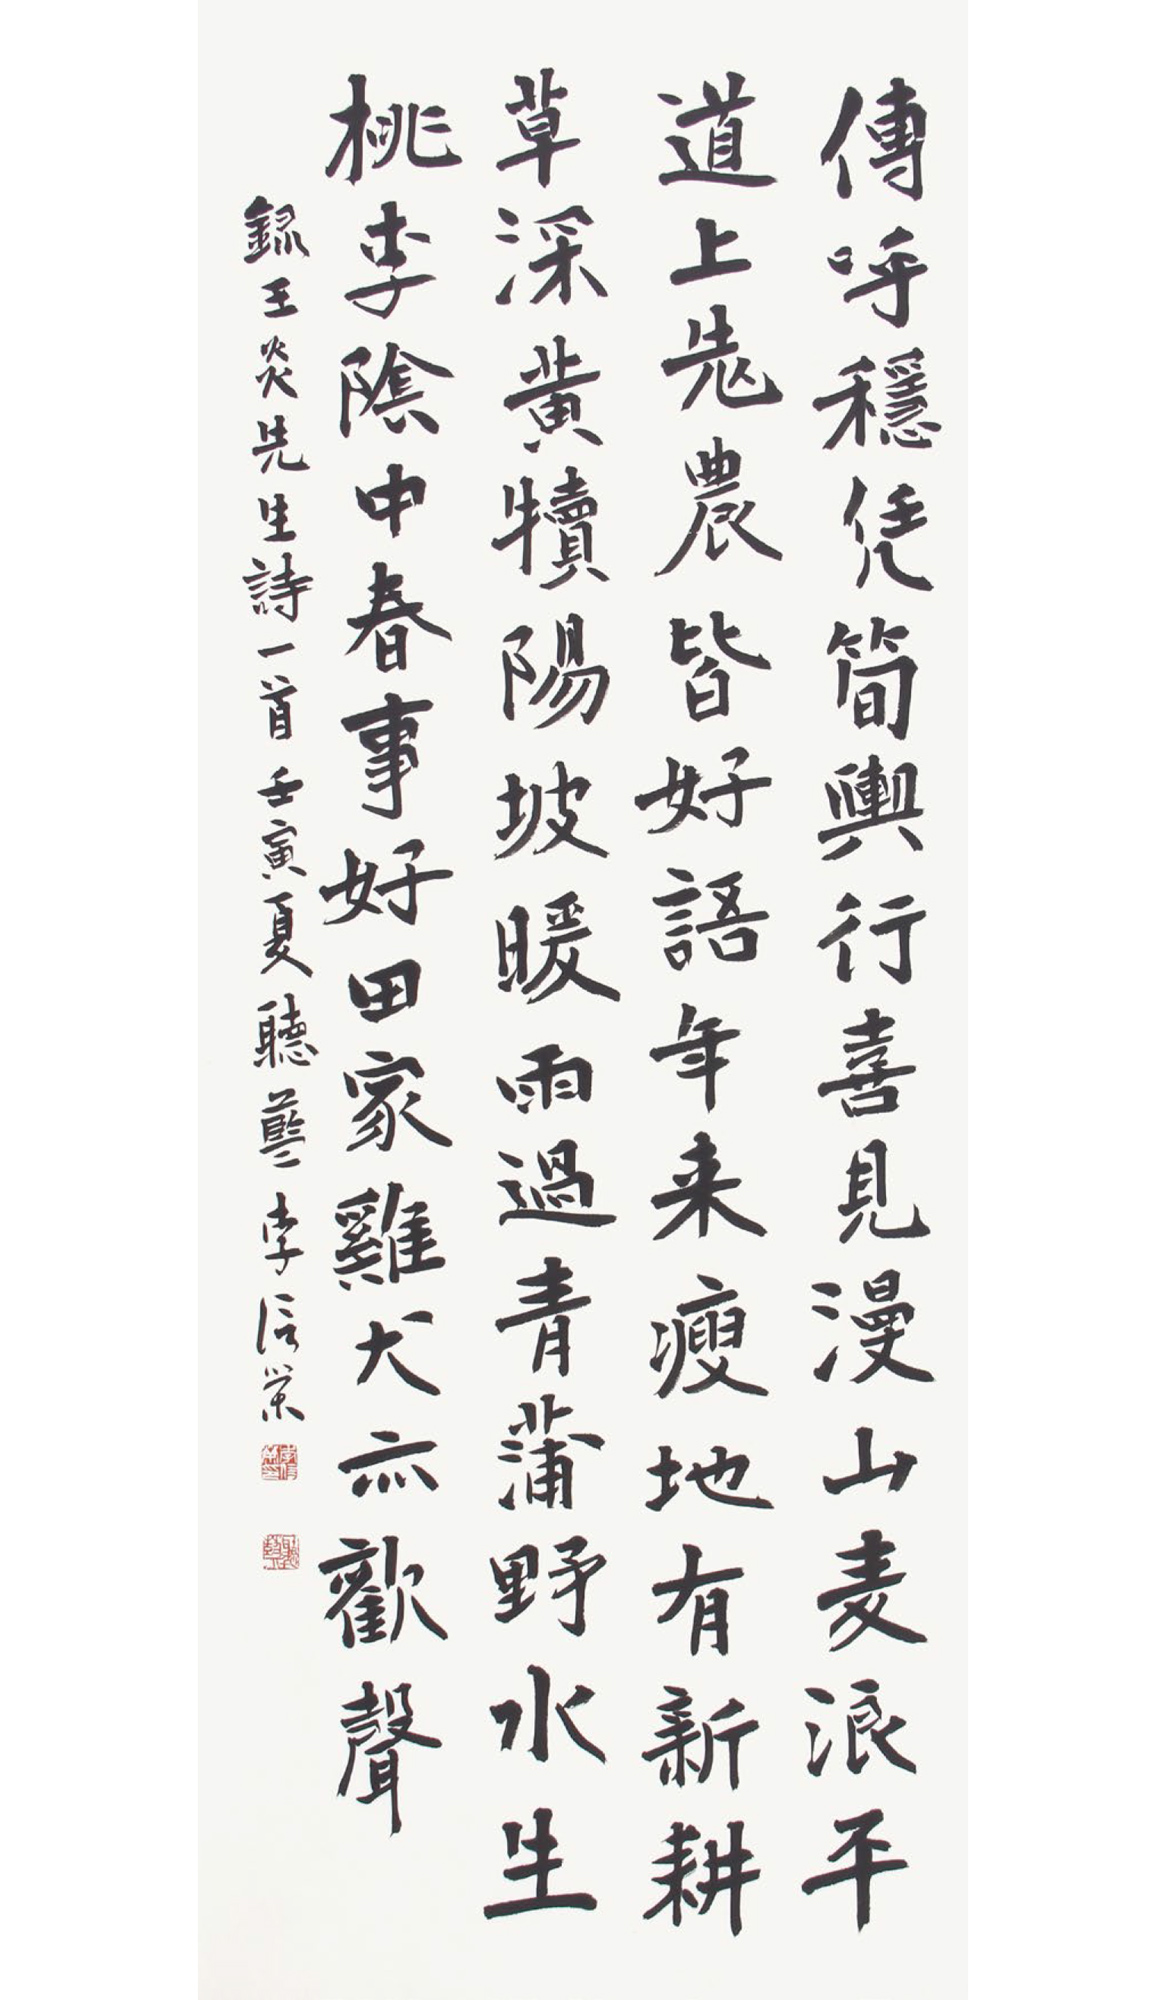 傳呼穩凭筍輿行喜見漫山麦浪平
道上老農皆好語年来瘦地有新耕
草深黄犢陽坡暖雨過青蒲野水生
桃李陰中春事好田家雞犬亦歡聲
録王炎先生詩一首壬寅夏聽藝李信榮